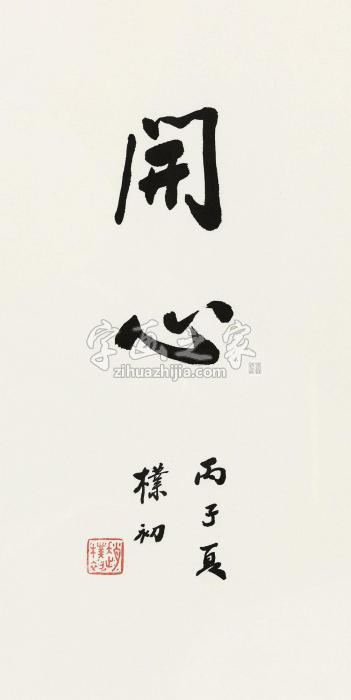 開心
丙子夏
樸初
字画之家
zihuazhijia.com